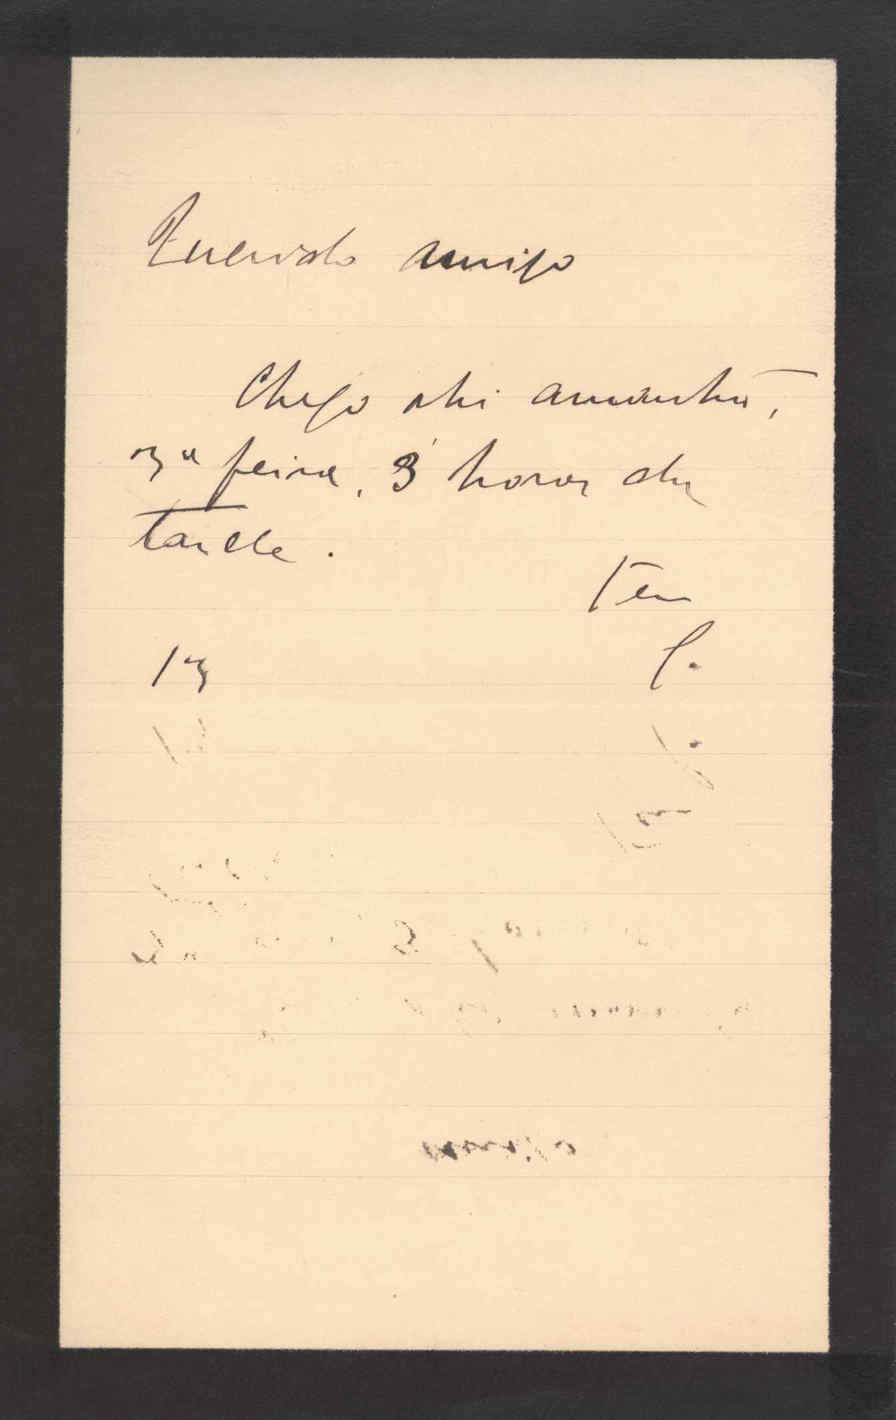 Querido amigo
Chego ahi amanhã,
3ª feira, 3 horas da
tarde.
Teu
C.
13